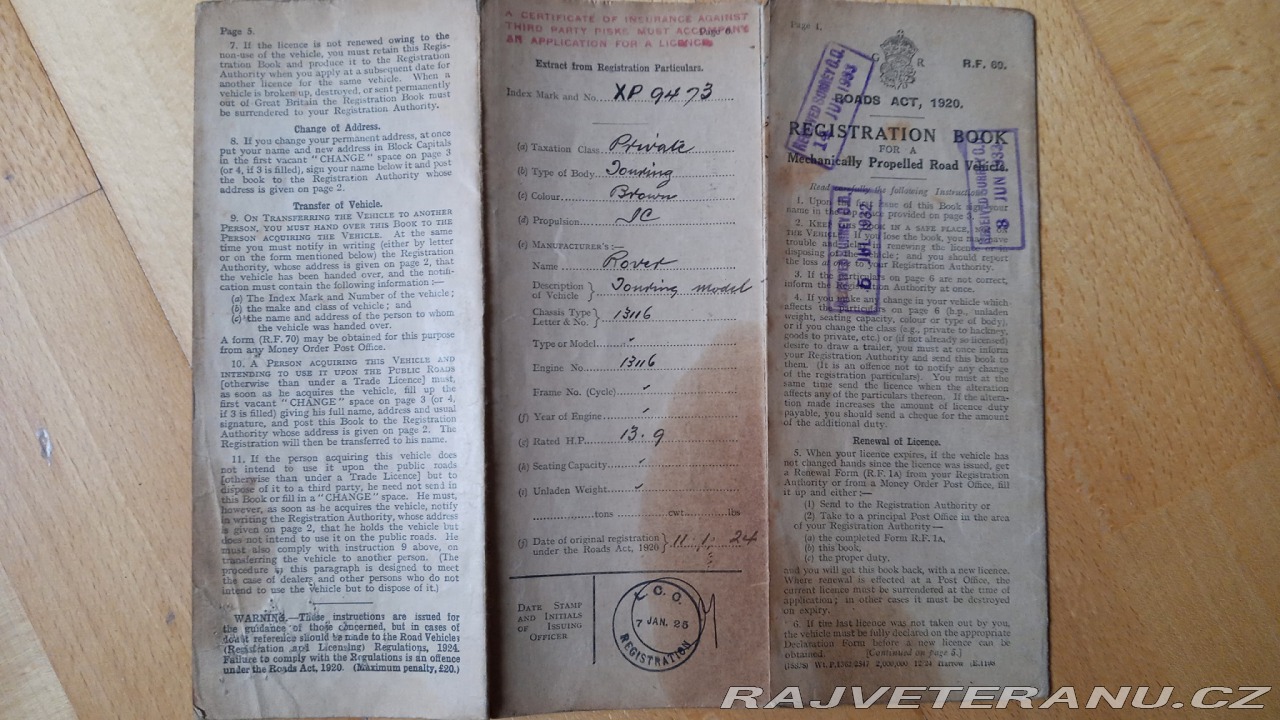 Page 5.
7. If the licence is not renewed owing to the
non-use of the vehicle, you must retain this Regis-
tration Book and produce it to the Registration
Authority when you apply at a subsequent date for
another licence for the same vehicle. When a
vehicle is broken up, destroyed, or sent permanently
out of Great Britain the Registration Book must
be surrendered to your Registration Authority.
Change of Address.
8. If you change your permanent address, at once
put your name and new address in Block Capitals
in the first vacant "CHANGE" space on page 3
(or 4, if 3 is filled), sign your name below it and post
the book to the Registration Authority whose
address is given on page 2.
Transfer of Vehicle.
9. ON TRANSFERRING THE VEHICLE TO ANOTHER
PERSON, YOU MUST HAND OVER THIS BOOK TO THE
PERSON ACQUIRING THE VEHICLE. At the same
time you must notify in writing (either by letter
or on the form mentioned below) the Registration
Authority, whose address is given on page 2, that
the vehicle has been handed over, and the notifi-
cation must contain the following information:—
(a) The Index Mark and Number of the vehicle;
(b) the make and class of vehicle; and
(c) the name and address of the person to whom
the vehicle was handed over.
A form (R.F. 70) may be obtained for this purpose
from any Money Order Post Office.
10. A PERSON ACQUIRING THIS VEHICLE AND
INTENDING TO USE IT UPON THE PUBLIC ROADS
[otherwise than under a Trade Licence] must,
as soon as he acquires the vehicle, fill up the
first vacant "CHANGE" space on page 3 (or 4,
if 3 is filled) giving his full name, address and usual
signature, and post this Book to the Registration
Authority whose address is given on page 2. The
Registration will then be transferred to his name.
11. If the person acquiring this vehicle does
not intend to use it upon the public roads
[otherwise than under a Trade Licence] but to
dispose of it to a third party, he need not send in
this Book or fill in a "CHANGE" space. He must,
however, as soon as he acquires the vehicle, notify
in writing the Registration Authority, whose address
is given on page 2, that he holds the vehicle but
does not intend to use it on the public roads. He
must also comply with instruction 9 above, on
transferring the vehicle to another person. (The
procedure in this paragraph is designed to meet
the case of dealers and other persons who do not
intend to use the vehicle but to dispose of it.)
WARNING.—These instructions are issued for
the guidance of those concerned, but in cases of
doubt reference should be made to the Road Vehicles
(Registration and Licensing) Regulations, 1924.
Failure to comply with the Regulations is an offence
under the Roads Act, 1920. (Maximum penalty, £20.)
A CERTIFICATE OF INSURANCE AGAINST
THIRD PARTY RISKS MUST ACCOMPANY
AN APPLICATION FOR A LICENCE
Page 6.
Extract from Registration Particulars.
Index Mark and No. XP 9473
(a) Taxation Class Private
(b) Type of Body Touring
(c) Colour Brown
(d) Propulsion IC
(e) MANUFACTURER'S:—
Name Rover
Description of Vehicle } Touring model
Chassis Type Letter & No. } 13116
Type or Model
Engine No. 13116
Frame No. (Cycle)
(f) Year of Engine
(g) Rated H.P. 13.9
(h) Seating Capacity
(i) Unladen Weight
tons cwt. lbs
(j) Date of original registration
under the Roads Act, 1920 } 11. 1. 24
DATE STAMP
AND INITIALS
OF ISSUING
OFFICER
L.C.C.
7 JAN. 25
REGISTRATION
Page 1.
G R
R.F. 60.
ROADS ACT, 1920.
REGISTRATION BOOK
FOR A
Mechanically Propelled Road Vehicle.
RECEIVED SURREY C.C.
14 JUN 1933
RECEIVED SURREY C.C.
8 JUN 1933
RECEIVED SURREY C.C.
5 JUL 1932
Read carefully the following Instructions
1. Upon the issue of this Book sign your
name in the space provided on page 3.
2. KEEP THIS BOOK IN A SAFE PLACE, NOT ON
THE VEHICLE. If you lose the book, you may have
trouble and delay in renewing the licence or in
disposing of the vehicle; and you should report
the loss at once to your Registration Authority.
3. If the particulars on page 6 are not correct,
inform the Registration Authority at once.
4. If you make any change in your vehicle which
affects the particulars on page 6 (h.p., unladen
weight, seating capacity, colour or type of body),
or if you change the class (e.g., private to hackney,
goods to private, etc.) or (if not already so licensed)
desire to draw a trailer, you must at once inform
your Registration Authority and send this book to
them. (It is an offence not to notify any change
of the registration particulars). You must at the
same time send the licence when the alteration
affects any of the particulars thereon. If the altera-
tion made increases the amount of licence duty
payable, you should send a cheque for the amount
of the additional duty.
Renewal of Licence.
5. When your licence expires, if the vehicle has
not changed hands since the licence was issued, get
a Renewal Form (R.F. 1A) from your Registration
Authority or from a Money Order Post Office, fill
it up and either:—
(1) Send to the Registration Authority or
(2) Take to a principal Post Office in the area
of your Registration Authority—
(a) the completed Form R.F. 1A,
(b) this book,
(c) the proper duty,
and you will get this book back, with a new licence.
Where renewal is effected at a Post Office, the
current licence must be surrendered at the time of
application; in other cases it must be destroyed
on expiry.
6. If the last licence was not taken out by you,
the vehicle must be fully declared on the appropriate
Declaration Form before a new licence can be
obtained. [Continued on page 5.]
2,000,000 12/24 Harrow
RAJVETERANU.CZ